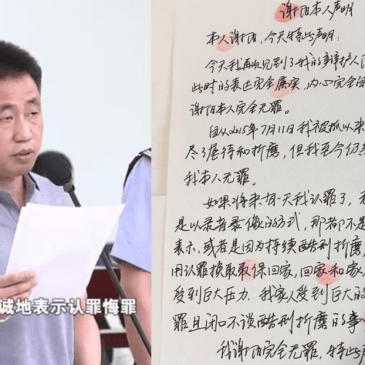 诚地表示认罪悔罪
谢阳本人声明
本人谢阳,今天特此声明:
今天我再次见到了我的辩护人
此时的表达完全属实,内心完全自
谢阳本人完全无罪。
自从2015年7月11日我被抓以来
尽了虐待和折磨,但我至今仍然
我本人无罪。
如果将来有一天我认罪了,
是以录音录像的方式,那都不是
表示,或者是因为持续酷刑折磨,
用认罪换取取保回家,回家和家人
受到巨大压力,我家人受到巨大的
罪且闭口不谈酷刑折磨的事
我谢阳完全无罪,特此声